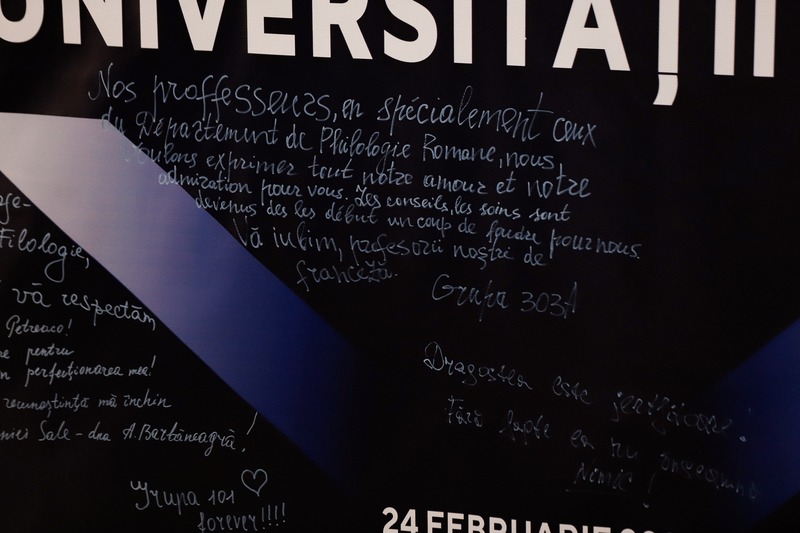 UNIVERSITĂȚII
Nos proffesseurs, en spécialement ceux
du Département de Philologie Romane, nous
voulons exprimer tout notre amour et notre
admiration pour vous. Les conseils, les soins sont
devenus des les début un coup de foudre pour nous.
Vă iubim, profesorii noștri de
franceză.
Grupa 303A
Filologie,
vă respectăm
Petreaco!
pentru
perfecționarea mea!
recunoștință mă închin
Sale - dna A. Bartâneagră!
Grupa 101
forever!!!!
Dragostea este jertfitoare!
Fără fapte ea nu înseamnă
Nimic!
24 FEBRUARIE